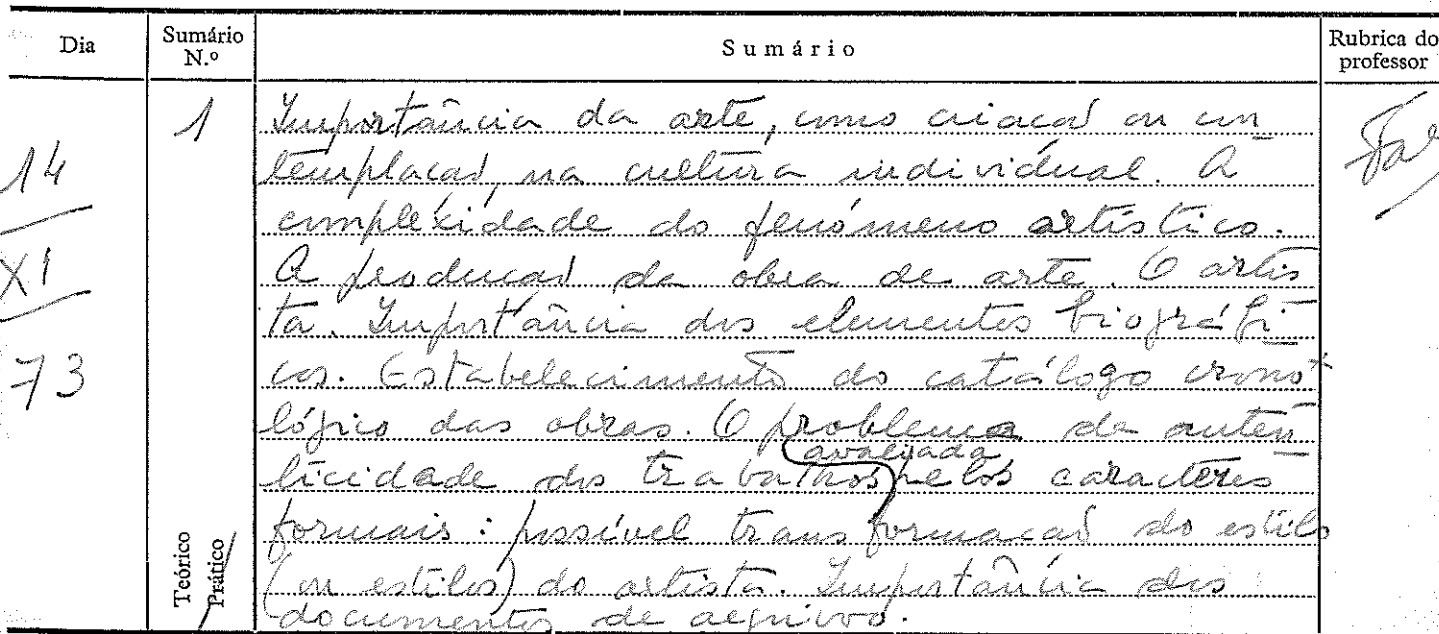 Dia Sumário N.º Sumário Rubrica do professor
14 XI 73
1
Importância da arte, como criação ou con-
templação, na cultura individual. A
complexidade do fenómeno artístico.
A produção da obra de arte. O artis-
ta. Importância dos elementos biográfi-
cos. Estabelecimento do catálogo crono-
lógico das obras. O problema da auten-
ticidade dos trabalhos avaliada pelos caracteres
formais: possível transformação do estilo
(ou estilos) do artista. Importância dos
documentos de arquivo.
Teórico
Prático